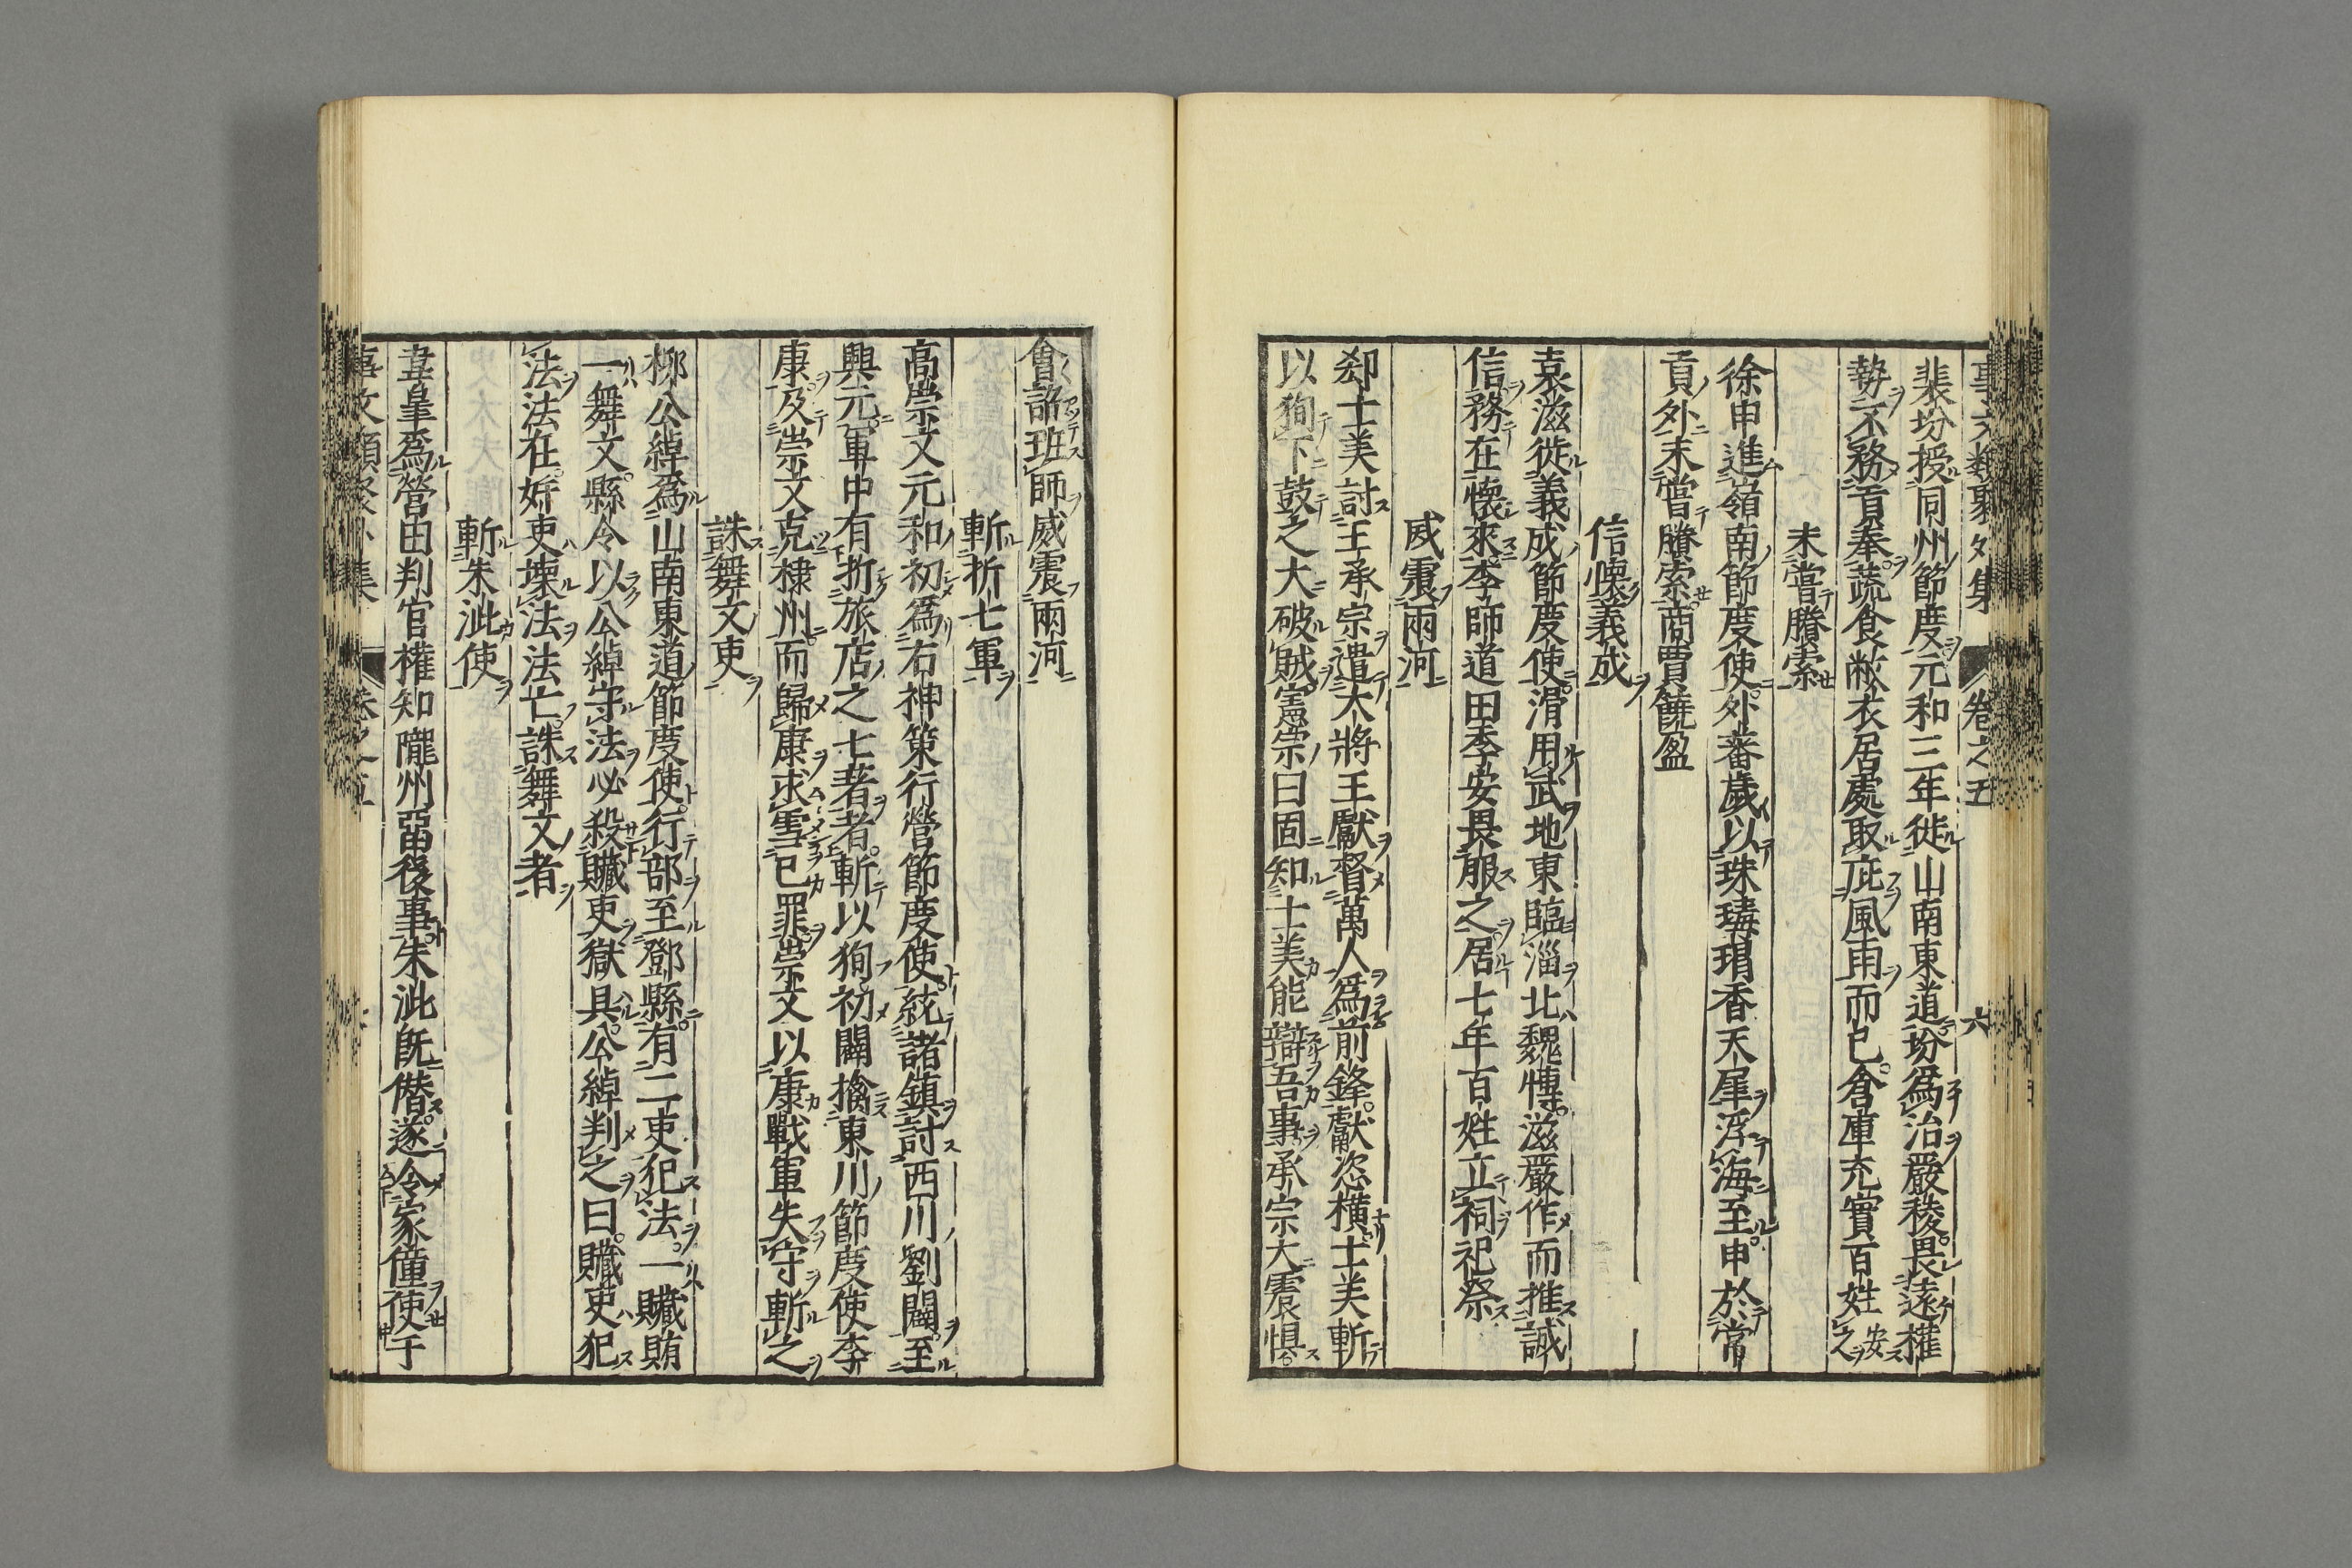 事文類聚外集 卷之五 六
裴坋授同州節度元和三年徙山南東道坋爲治嚴稜畏遠權
勢不務貢奉蔬食敝衣居處取庇風雨而已倉庫充實百姓安之
未嘗賸索
徐申進嶺南節度使外蕃歲以珠瑇瑁香天犀浮海至申於常
貢外未嘗賸索商賈饒盈
信懷義成
袁滋徙義成節度使滑用武地東臨淄北魏愽滋嚴作而推誠
信務在懷來李師道田季安畏服之居七年百姓立祠祀祭
威震兩河
郄士美討王承宗遣大將王獻督萬人爲前鋒獻恣橫士美斬
以狥下鼓之大破賊憲宗曰固知士美能辯吾事承宗大震惧
會詔班師威震兩河
斬折七軍
高崇文元和初爲右神策行營節度使統諸鎮討西川劉闢至
興元軍中有折旅店之七者者斬以狥初闢擒東川節度使李
康及崇文克棣州而歸康求雪已罪崇文以康戰軍失守斬之
誅舞文吏
柳公綽爲山南東道節度使行部至鄧縣有二吏犯法一贓賄
一舞文縣令以公綽守法必殺贓吏獄具公綽判之曰贓吏犯
法法在奸吏壞法法亡誅舞文者
斬朱泚使
韋皐爲營田判官權知隴州畱後事朱泚既僣遂令家僮使于
事文類聚外集 卷之五